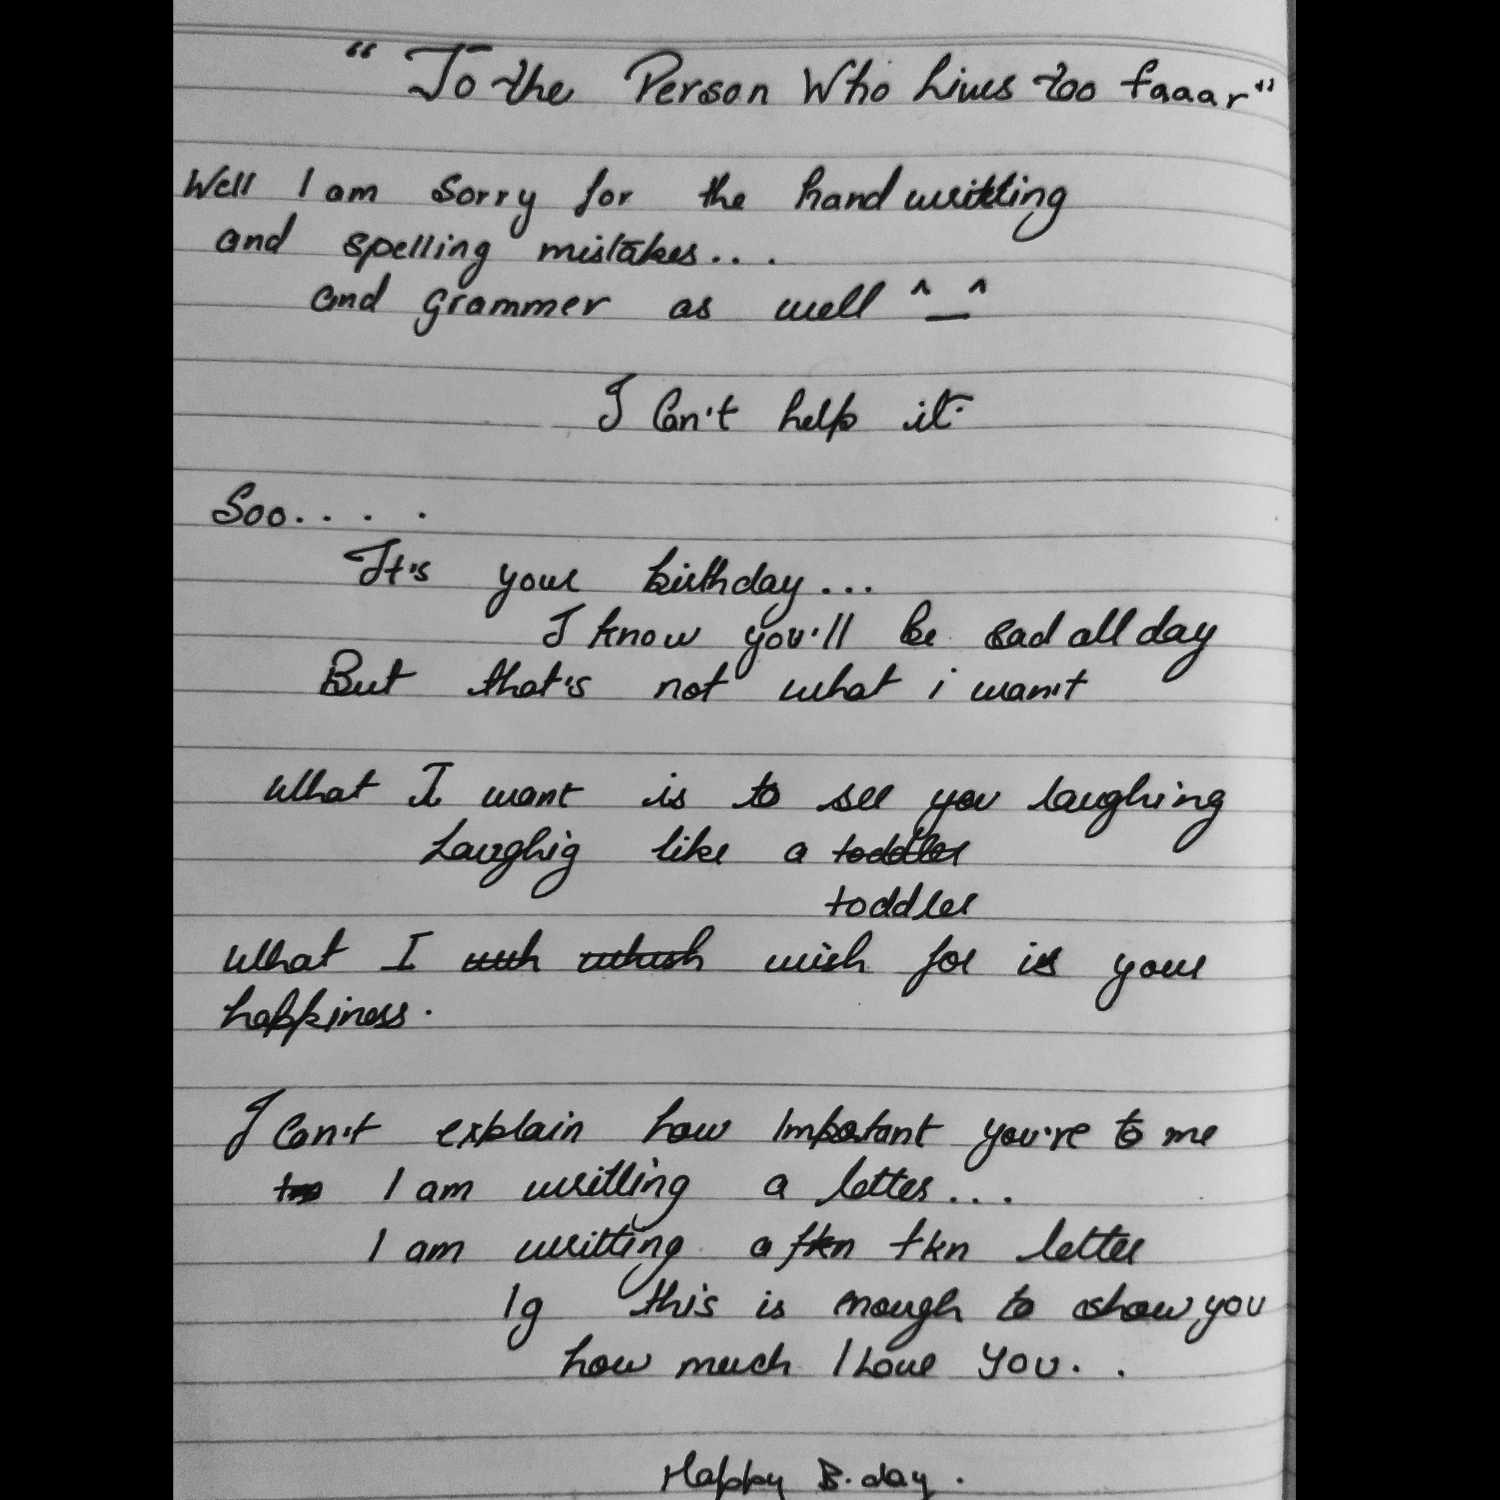 “ To the Person Who Lives too faaar”
Well I am Sorry for the handwritting
and spelling mistakes...
and grammer as well ^_^
I Can't help it.
Soo....
It's your birthday...
I know you'll be sad all day
But that's not what i wan't
What I want is to see you laughing
Laughig like a toddler
toddler
What I wish for is your
happiness.
I Can't explain how Important you're to me
I am writting a letter...
I am writting a fkn fkn letter
Ig this is enough to show you
how much I Love You..
Happy B.day.